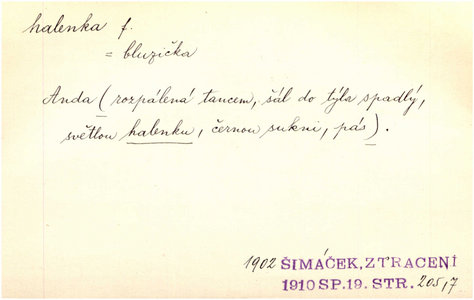 halenka f.
= bluzička
Anda (rozpálená tancem, šál do týla spadlý,
světlou halenku, černou sukni, pás).
1902 ŠIMÁČEK, ZTRACENÍ
1910 SP. 19. STR. 205,7